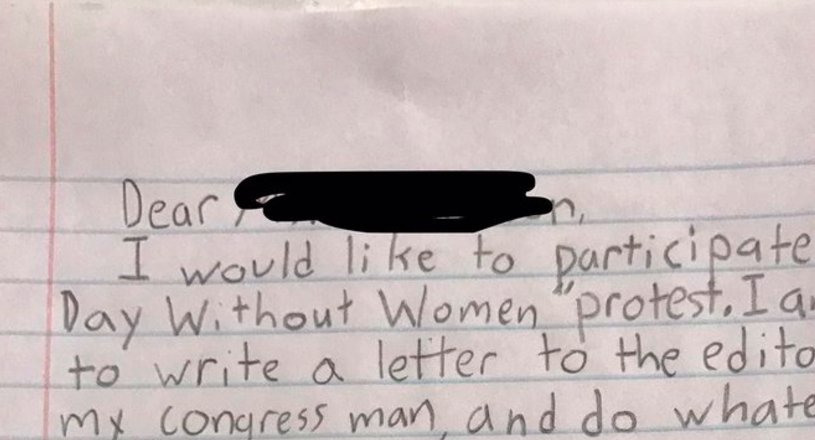 Dear
I would like to participate
Day Without Women" protest. I
to write a letter to the
my congress man, and do